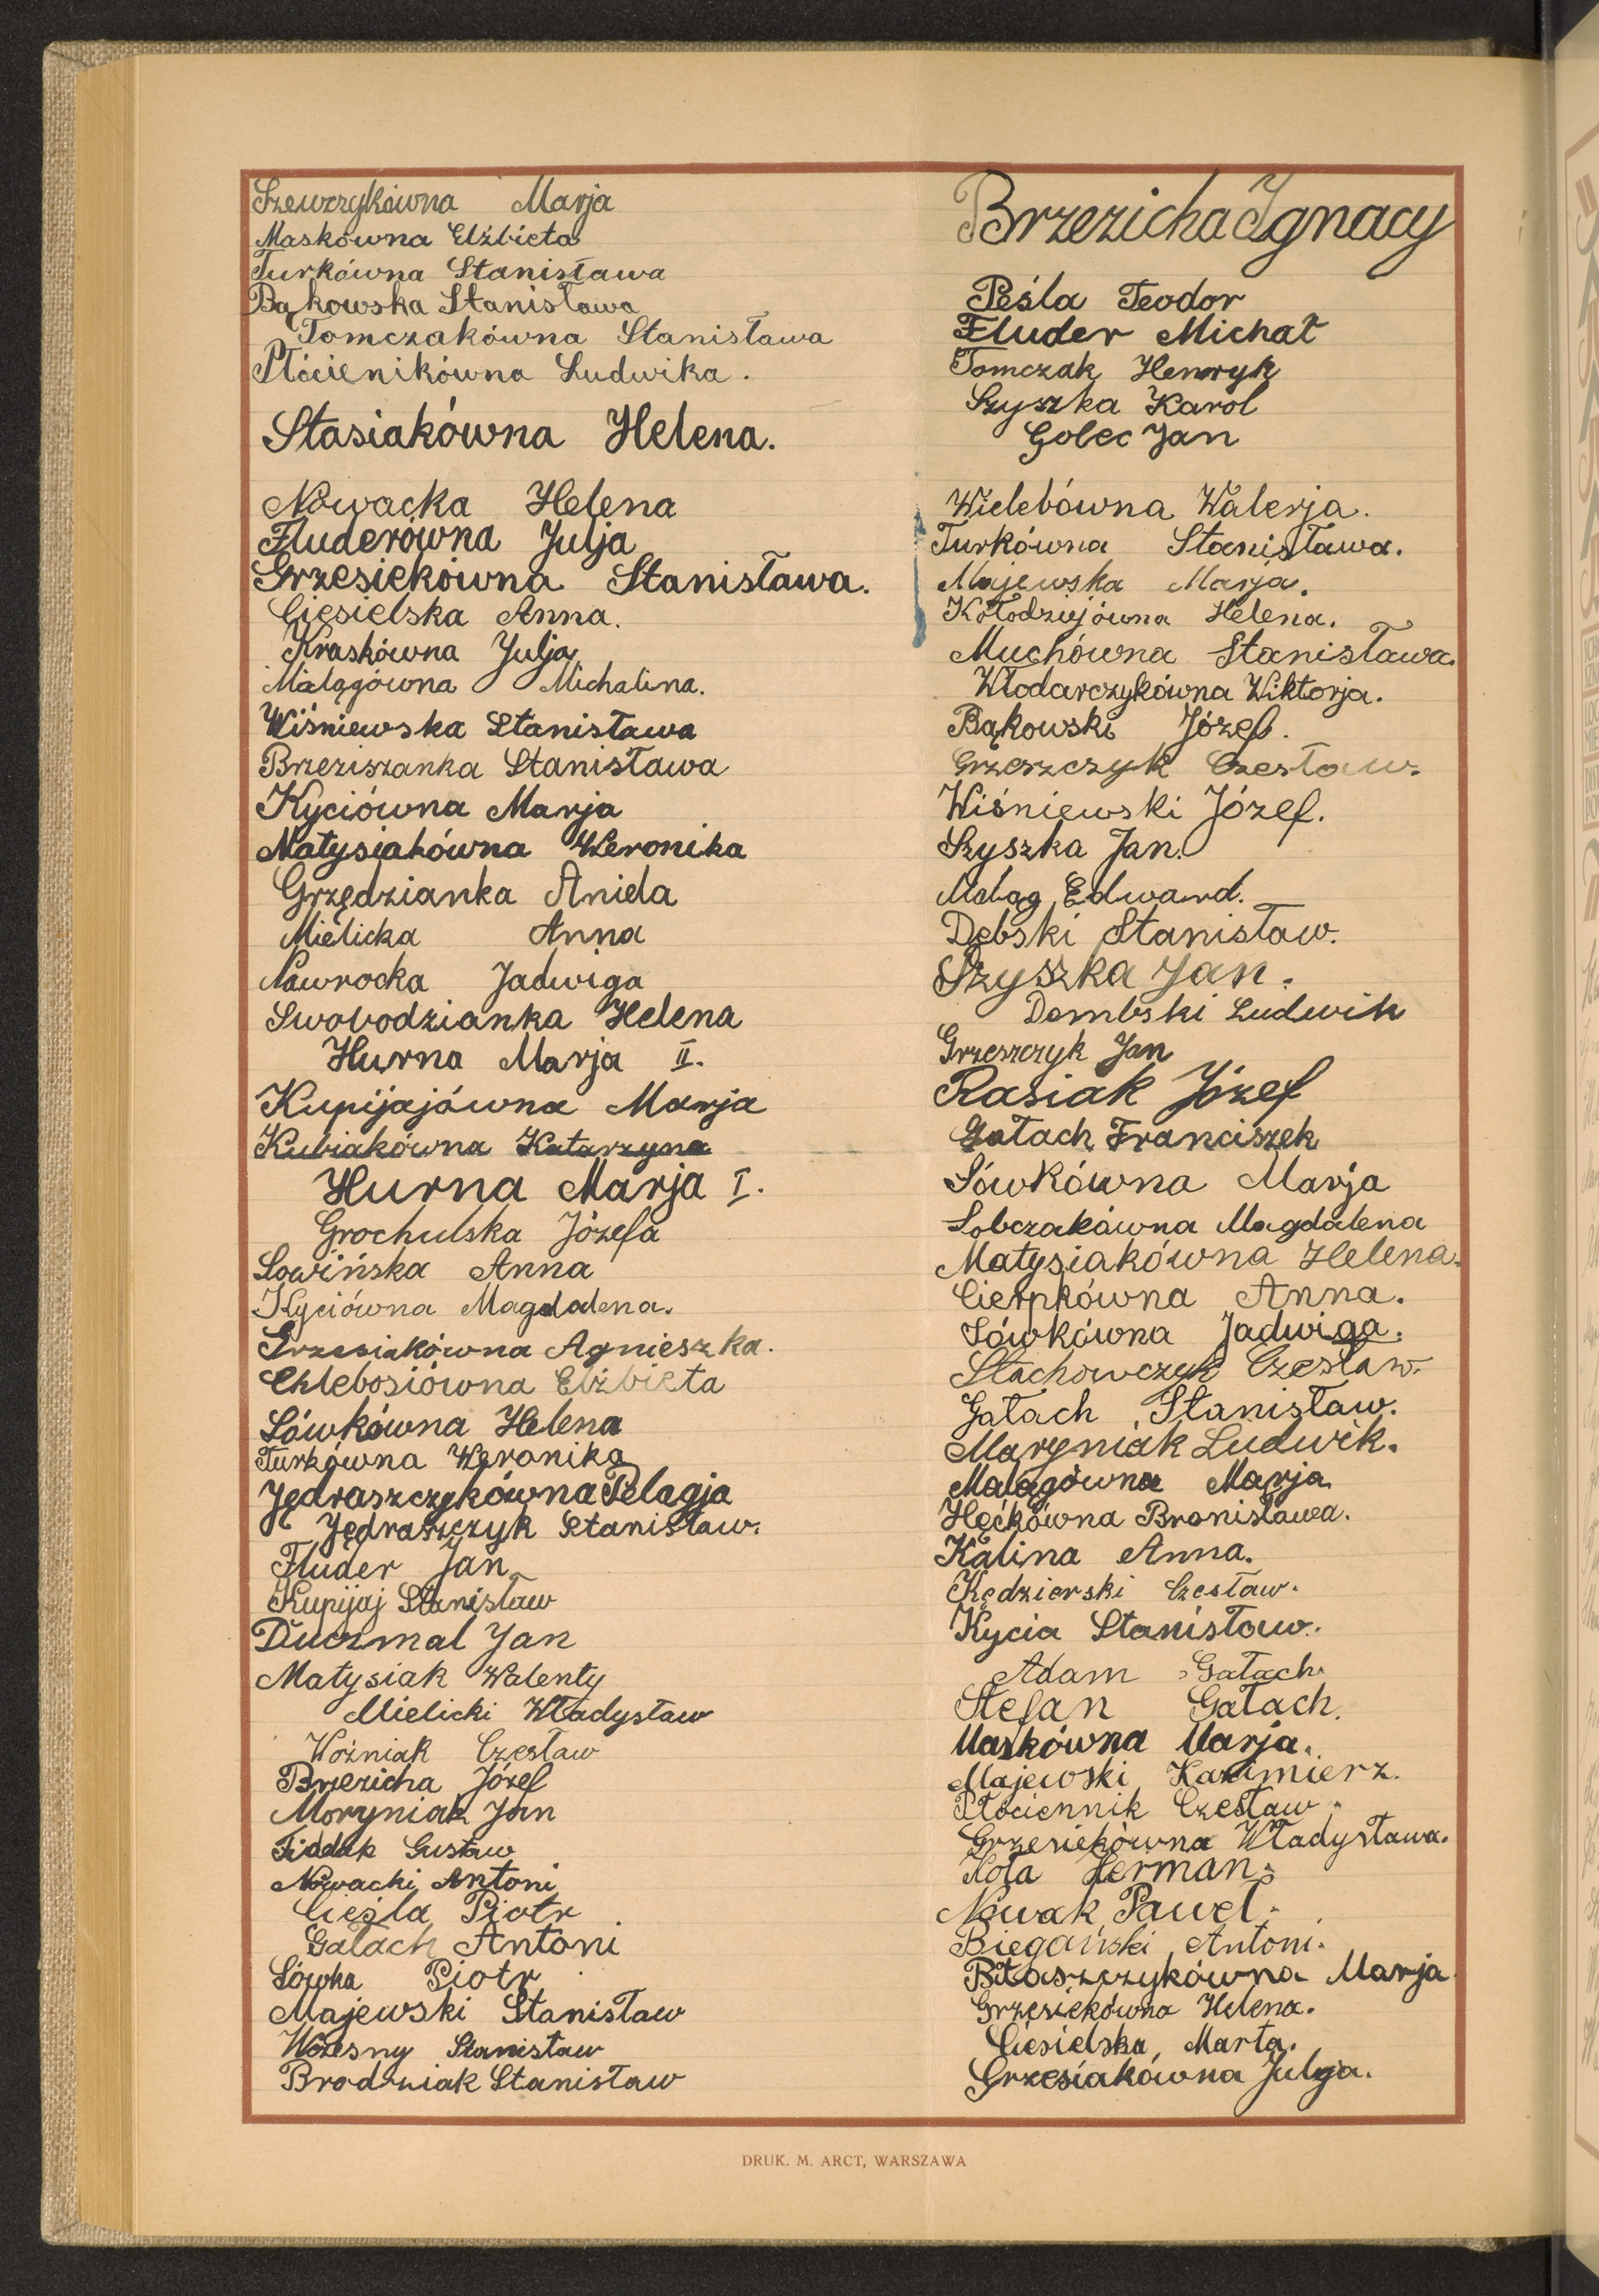 Szewczykówna Marja
Maskówna Elżbieta
Turkówna Stanisława
Bąkowska Stanisława
Tomczakówna Stanisława
Płócienikówna Ludwika.
Stasiakówna Helena.
Nowacka Helena
Fluderówna Julja
Grzesiekówna Stanisława.
Ciesielska Anna.
Kraskówna Julja
Malągówna Michalina.
Wiśniewska Stanisława
Brzeziszanka Stanisława
Kyciówna Marja
Matysiakówna Weronika
Grzędzianka Aniela
Mielicka Anna
Nawrocka Jadwiga
Swobodzianka Helena
Hurna Marja II.
Kupijajówna Marja
Kubiakówna Katarzyna
Hurna Marja I.
Grochulska Józefa
Sowińska Anna
Kyciówna Magdalena.
Grzesiakówna Agnieszka.
Chlebosiówna Elżbieta
Sówkówna Helena
Turkówna Weronika
Jędraszczykówna Pelagja
Jędraszczyk Stanisław.
Fluder Jan
Kupijaj Stanisław
Duczmal Jan
Matysiak Walenty
Mielicki Władysław
Woźniak Czesław
Brzezicha Józef
Moryniak Jan
Gustaw
Nowacki Antoni
Cieśla Piotr
Gałach Antoni
Sówka Piotr
Majewski Stanisław
Wczesny Stanisław
Brodniak Stanisław
Brzezicha Ignacy
Peśla Teodor
Fluder Michał
Tomczak Henryk
Szyszka Karol
Golec Jan
Wielebówna Walerja.
Turkówna Stanisława.
Majewska Marja.
Kołodziejówna Helena.
Muchówna Stanisława.
Włodarczykówna Wiktorja.
Bąkowski Józef.
Grzeszczyk Czesław.
Wiśniewski Józef.
Szyszka Jan.
Maląg Edward.
Dębski Stanisław.
Szyszka Jan.
Dembski Ludwik
Grzeszczyk Jan
Rasiak Józef
Gałach Franciszek
Sówkówna Marja
Sobczakówna Magdalena
Matysiakówna Helena.
Cierpkówna Anna.
Sówkówna Jadwiga.
Stachowczyk Czesław.
Gałach Stanisław.
Maryniak Ludwik.
Malągówna Marja
Hećkówna Bronisława.
Kalina Anna.
Kędzierski Czesław.
Kycia Stanisław.
Adam Gałach
Stefan Gałach.
Maskówna Marja.
Majewski Kazimierz.
Płóciennik Czesław.
Grzesiekówna Władysława.
Herman.
Nowak Paweł.
Biegański Antoni.
Błaszczykówna Marja
Grzesiekówna Helena.
Ciesielska Marta.
Grzesiakówna Julja.
DRUK. M. ARCT, WARSZAWA